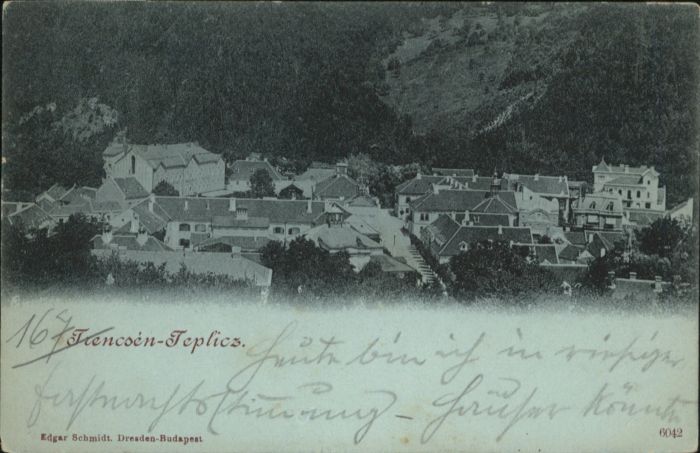 167 Trencsén-Teplicz. Heute bin ich in riesiger
Fastnachtsstimmung - Häuser könnte
Edgar Schmidt. Dresden-Budapest 6042